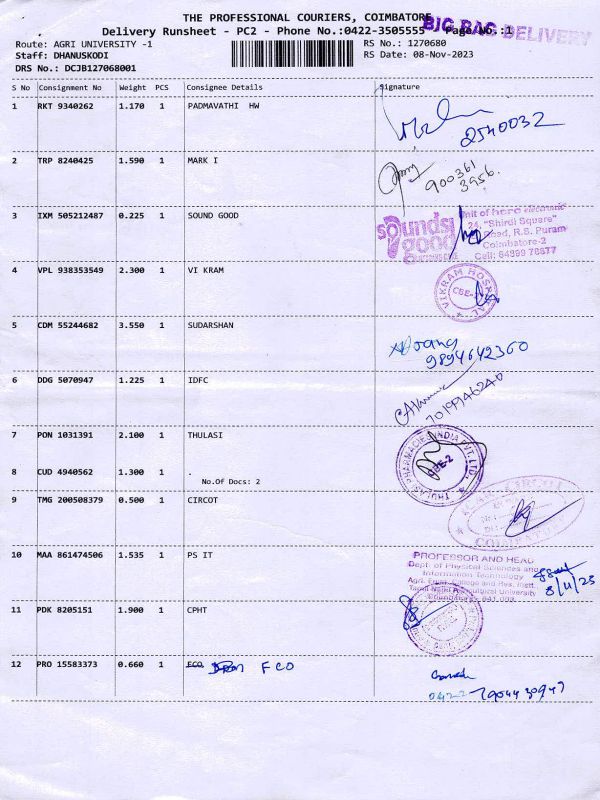 THE PROFESSIONAL COURIERS, COIMBATORE
BIG BAG DELIVERY
Delivery Runsheet - PC2 - Phone No.:0422-3505555 Page No.:1
Route: AGRI UNIVERSITY -1 RS No.: 1270680
Staff: DHANUSKODI RS Date: 08-Nov-2023
DRS No.: DCJB127068001
S No Consignment No Weight PCS Consignee Details Signature
1 RKT 9340262 1.170 1 PADMAVATHI HW
2540032
2 TRP 8240425 1.590 1 MARK I
900361
3956.
3 IXM 505212487 0.225 1 SOUND GOOD
sounds good
Unit of here electronic
24, "Shirdi Square"
Road, R.S. Puram
Coimbatore-2
Cell: 84899 78877
4 VPL 938353549 2.300 1 VI KRAM
VIKRAM HOSPITAL
CBE-2
5 CDM 55244682 3.550 1 SUDARSHAN
9894642360
6 DDG 5070947 1.225 1 IDFC
7019946240
7 PON 1031391 2.100 1 THULASI
THULASI PHARMACIES INDIA PVT. LTD.
CBE-2
8 CUD 4940562 1.300 1 .
No.Of Docs: 2
9 TMG 200508379 0.500 1 CIRCOT
CIRCOT
COIMBATORE
10 MAA 861474506 1.535 1 PS IT
PROFESSOR AND HEAD
Dept. of Physical Sciences and
Information Technology
Agri. Engg. College and Res. Instt.
Tamil Nadu Agricultural University
Coimbatore-641 003.
8/11/23
11 PDK 8205151 1.900 1 CPHT
12 PRO 15583373 0.660 1 FCO FCO
Ganesh
0422 7904439947